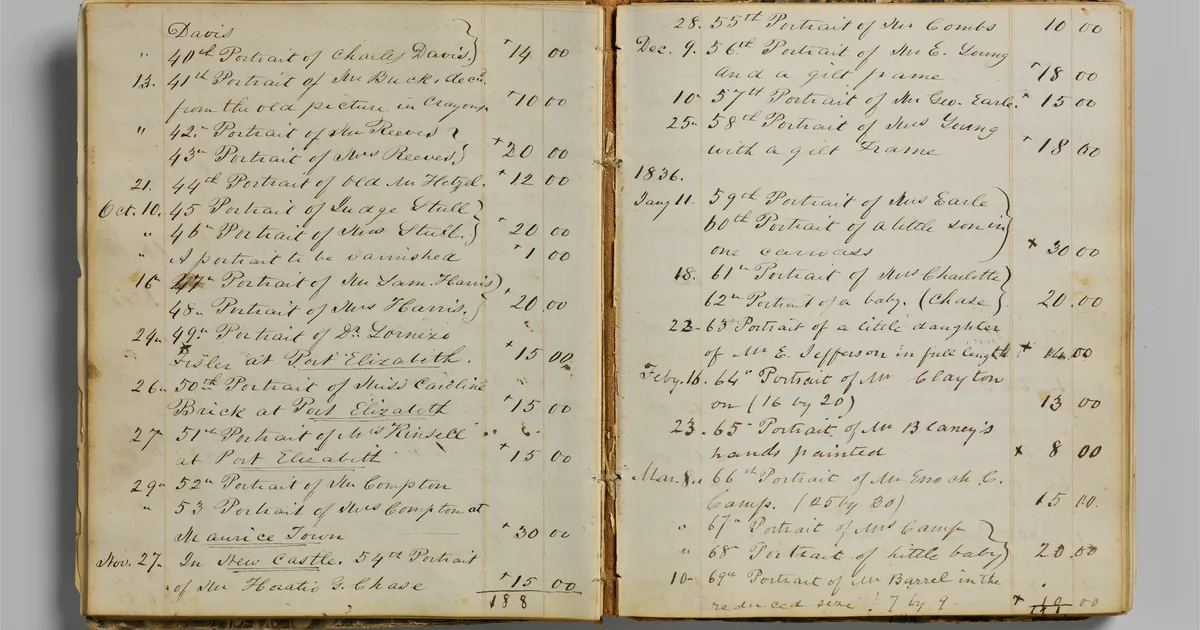 Davis
" 40th Portrait of Charles Davis. 14 00
13. 41th Portrait of Mr Buck, decd.
from the old picture in Crayons 10 00
" 42n Portrait of Mr Reeves
43n Portrait of Mrs Reeves 20 00
21. 44th Portrait of Old Mr Hetzel. 12 00
Oct. 10. 45 Portrait of Judge Stull
" 46n Portrait of Mrs Stull. 20 00
" A portrait to be varnished 1 00
16 47n Portrait of Mr Sam. Harris
48n Portrait of Mrs Harris. 20.00
24n 49n Portrait of Dr Lornezo
Fisler at Port Elizabeth. 15 00
26n 50th Portrait of Miss Caroline
Brick at Port Elizabeth 15 00
27 51th Portrait of Mrs Kinsell
at Port Elizabeth 15 00
29n 52n Portrait of Mr Compton
" 53 Portrait of Mrs Compton at
Maurice Town 30 00
Nov. 27. In New Castle. 54th Portrait
of Mr Horatio G. Chase 15 00
188
28. 55th Portrait of Mr Combs 10 00
Dec. 9. 56th Portrait of Mr E. Young
and a gilt frame 18 00
10 57th Portrait of Mr Geo. Earle. 15 00
25n 58th Portrait of Mrs Young
with a gilt Frame 18 00
1836.
Jany 11. 59th Portrait of Mrs Earle
60th Portrait of a little son in
one canvass 30 00
18. 61n Portrait of Mrs Charlotte
62n Portrait of a baby. (Chase 20.00
22- 63 Portrait of a little daughter
of Mr E. Jefferson in full length 14.00
Feby. 16. 64n Portrait of Mr Clayton
on (16 by 20) 13 00
23. 65 Portrait of Mr Blaney's
hands painted 8 00
Mar. 8. 66th Portrait of Mr Enoch C.
Camp. (25 by 30) 15 00.
" 67n Portrait of Mrs Camp
" 68 Portrait of little baby 20.00
10- 69th Portrait of Mr Barrel in the
reduced size 7 by 9 10 00